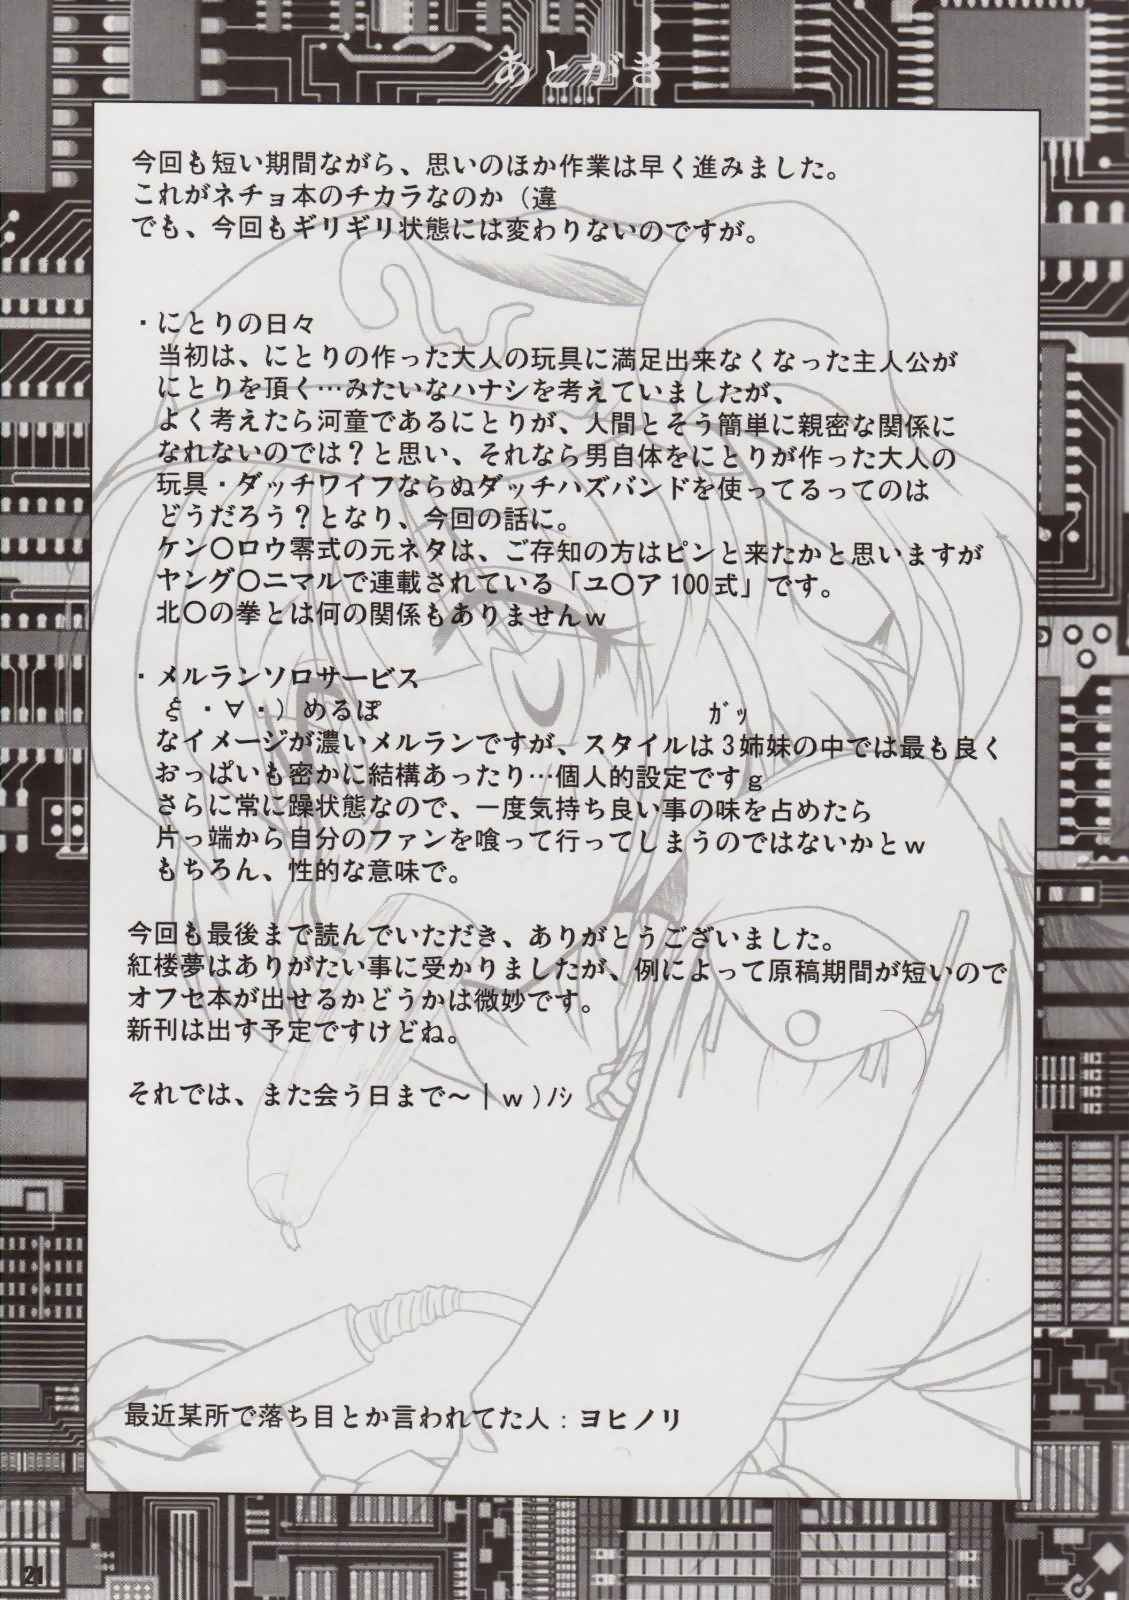 あとがき
今回も短い期間ながら、思いのほか作業は早く進みました。
これがネチョ本のチカラなのか（違
でも、今回もギリギリ状態には変わりないのですが。
・にとりの日々
当初は、にとりの作った大人の玩具に満足出来なくなった主人公が
にとりを頂く…みたいなハナシを考えていましたが、
よく考えたら河童であるにとりが、人間とそう簡単に親密な関係に
なれないのでは？と思い、それなら男自体をにとりが作った大人の
玩具・ダッチワイフならぬダッチハズバンドを使ってるってのは
どうだろう？となり、今回の話に。
ケン〇ロウ零式の元ネタは、ご存知の方はピンと来たかと思いますが
ヤング〇ニマルで連載されている「ユ〇ア100式」です。
北〇の拳とは何の関係もありませんｗ
・メルランソロサービス
ξ・∀・）めるぽ　　　ｶﾞｯ
なイメージが濃いメルランですが、スタイルは3姉妹の中では最も良く
おっぱいも密かに結構あったり…個人的設定ですｇ
さらに常に躁状態なので、一度気持ち良い事の味を占めたら
片っ端から自分のファンを喰って行ってしまうのではないかとｗ
もちろん、性的な意味で。
今回も最後まで読んでいただき、ありがとうございました。
紅楼夢はありがたい事に受かりましたが、例によって原稿期間が短いので
オフセ本が出せるかどうかは微妙です。
新刊は出す予定ですけどね。
それでは、また会う日まで～｜ｗ）ﾉｼ
最近某所で落ち目とか言われてた人：ヨヒノリ
21